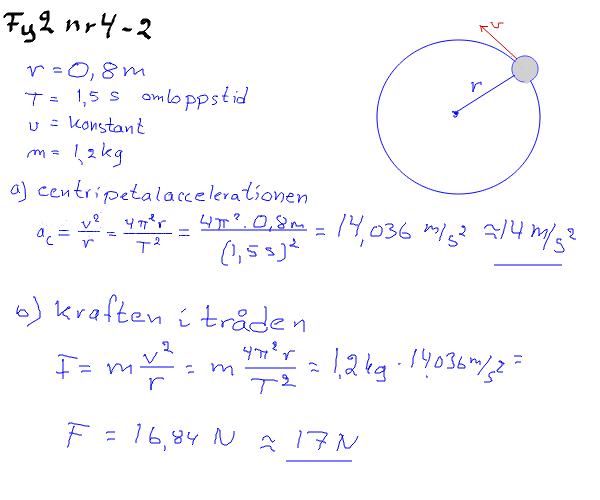 Fy2 nr 4-2
v
r = 0,8 m
r
T = 1,5 s omloppstid
v = konstant
m = 1,2 kg
a) centripetalaccelerationen
a_c = v²/r = 4π²r/T² = 4π²·0,8m/(1,5s)² = 14,036 m/s² ≈ 14 m/s²
b) kraften i tråden
F = m v²/r = m 4π²r/T² = 1,2kg · 14,036 m/s² =
F = 16,84 N ≈ 17 N